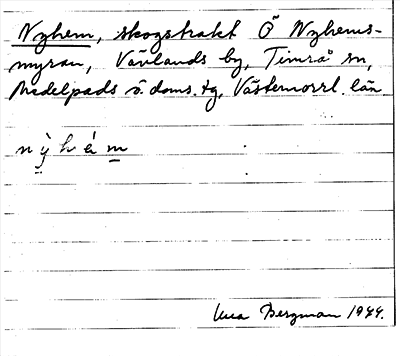 Nyhem, skogstrakt Ö Nyhems-
myran, Vävlands by, Timrå sn,
Medelpads ö. doms. tg, Västernorrl. län
nỳhém
Bergman 1944.